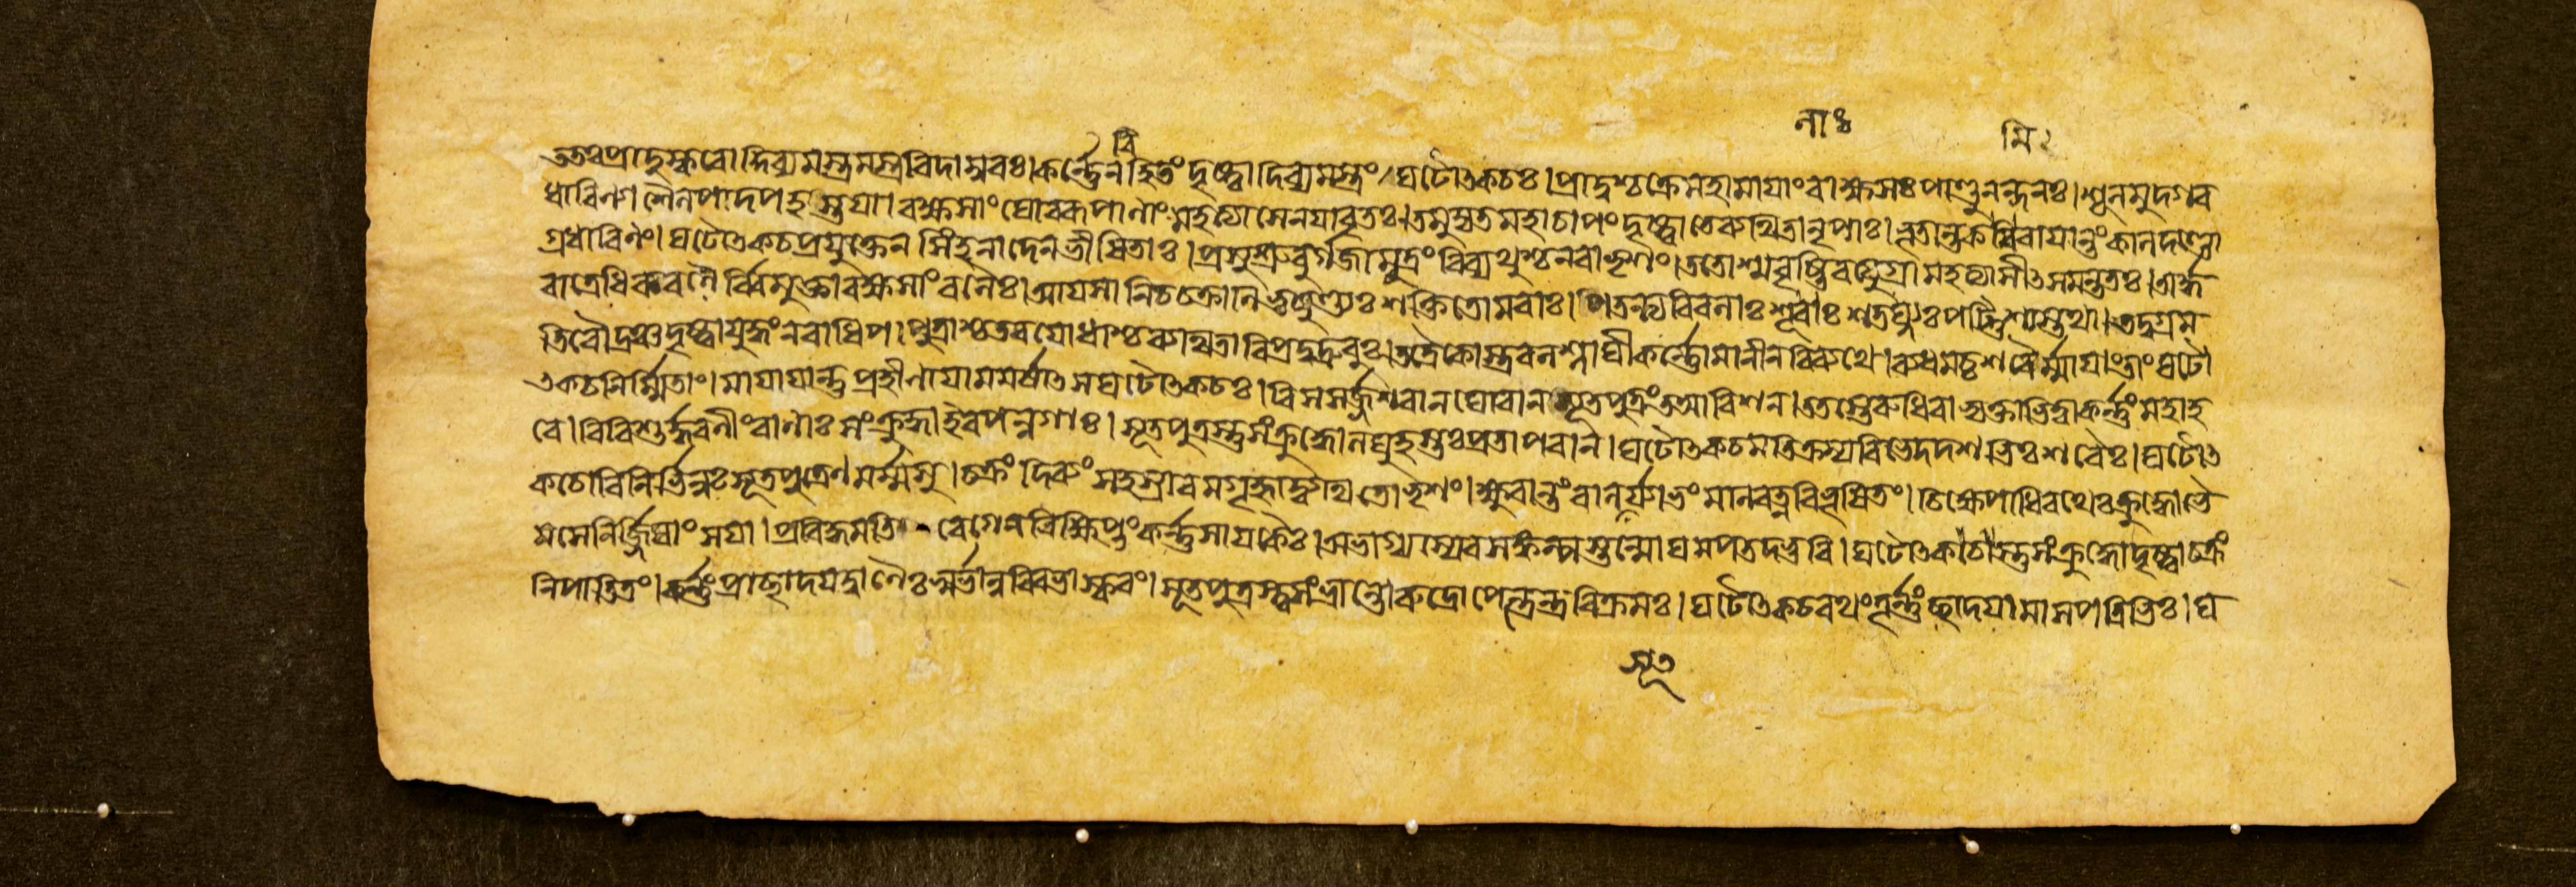 নাঃ মি২
বি
ততঃপ্রাদুস্করোদ্দিব্যমস্ত্রমস্ত্রবিদাম্বরঃ।কর্ন্নেনহিতং দৃষ্ট্বাদিব্যমস্ত্রং।ঘটোৎকচঃ।প্রাদুশ্চক্রেমহামাযাংরাক্ষসঃপাণ্ডুনন্দনঃ।শূলমুদগর
ধারিণশৈলপাদপহস্তযা।রক্ষসাং ঘোররূপানাং মহত্যাসেনযাবৃতঃ।তমুদ্যতমহাচাপং দৃষ্ট্বাতেব্যথিতানৃপাঃ।ভূতান্তকমিবাযান্তংকালদণ্ডো
গ্রধারিণং।ঘটোৎকচপ্রযুক্তেন সিংহনাদেনভীষিতাঃ।প্রসুশ্রুবুর্গজামুত্রংবিব্যথুশ্চনরাভৃশং।ততোশ্মবৃষ্টিরত্যুগ্রামহত্যাসীৎসমন্ততঃ।অর্দ্ধ
রাত্রেধিকবলৈর্বিমুক্তারক্ষসাংবলৈঃ।আযসানিচচক্রানিভুষুণ্ড্যঃশক্তিতোমরাঃ।পতন্ত্যবিরলাঃশূলাঃশতঘ্ন্যঃপট্টিশাস্তথা।তদুগ্রম
তিরৌদ্রঞ্চদৃষ্ট্বাযুদ্ধংনরাধিপ।পুত্রাশ্চতবযোধাশ্চব্যথিতাবিপ্রদুদ্রুবুঃ।তত্রৈকোস্ত্রবলশ্লাঘীকর্ন্নোমানীনবিব্যথে।ব্যধমচ্চশরৈর্ম্মাযাংতাংঘটো
ৎকচনির্ম্মিতাং।মাযাযান্তুপ্রহীনাযামমর্ষাৎসঘটোৎকচঃ।বিসসর্জ্জশরানঘোরানসূতপুত্রংতআবিশন।ততস্তেরুধিরাভ্যক্তাভিত্ত্বাকর্ন্নংমহাহ
বে।বিবিশুর্দ্ধরনীংবানাঃসংক্রুদ্ধাইবপন্নগাঃ।সূতপুত্রস্তুসংক্রুদ্ধোলঘুহস্তঃপ্রতাপবান।ঘটোৎকচমতিক্রম্যবিভেদদশভিঃশরৈঃ।ঘটোৎ
কচোবিনির্ভিন্নঃসূতপুত্রেণমর্ম্মসু।চক্রং দিব্যংসহস্রারমগৃহ্নাদ্ব্যথিতোভৃশং।ক্ষুরান্তংবালসূর্যাভংমানরত্নবিভূষিতং।চিক্ষেপাধিরথেঃক্রুদ্ধোভৈ
মসেনির্জ্জিঘাংসযা।প্রবিদ্ধমতিবেগেনবিক্ষিপ্তংকর্ন্নসাযকৈঃ।অভাগ্যস্যেবসঙ্কল্পস্তন্মোঘমপতদভুবি।ঘটোৎকচোস্তুসংক্রুদ্ধোদৃষ্ট্বাচক্রং
নিপাতিতং।কর্ন্নংপ্রাচ্ছাদযদ্বাণৈঃস্বর্ভানুরিবভাস্করং।সূতপুত্রস্ত্বসংভ্রান্তোরুদ্রোপেন্দ্রেন্দ্রবিক্রমঃ।ঘটোৎকচরথংতূর্ন্নংছাদযামাসপত্রিভিঃ।ঘ
সূত